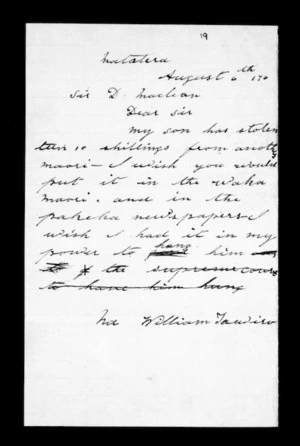 19
Matatera
August 6th /70
Sir D. Maclean
Dear Sir
My son has stolen
ten 10 shillings from anoth
maori - I wish you would
put it in the Waka
maori. and in the
pakeha newspapers I
wish I had it in my
power to hang him
the supreme cour
to have him hung
Na William